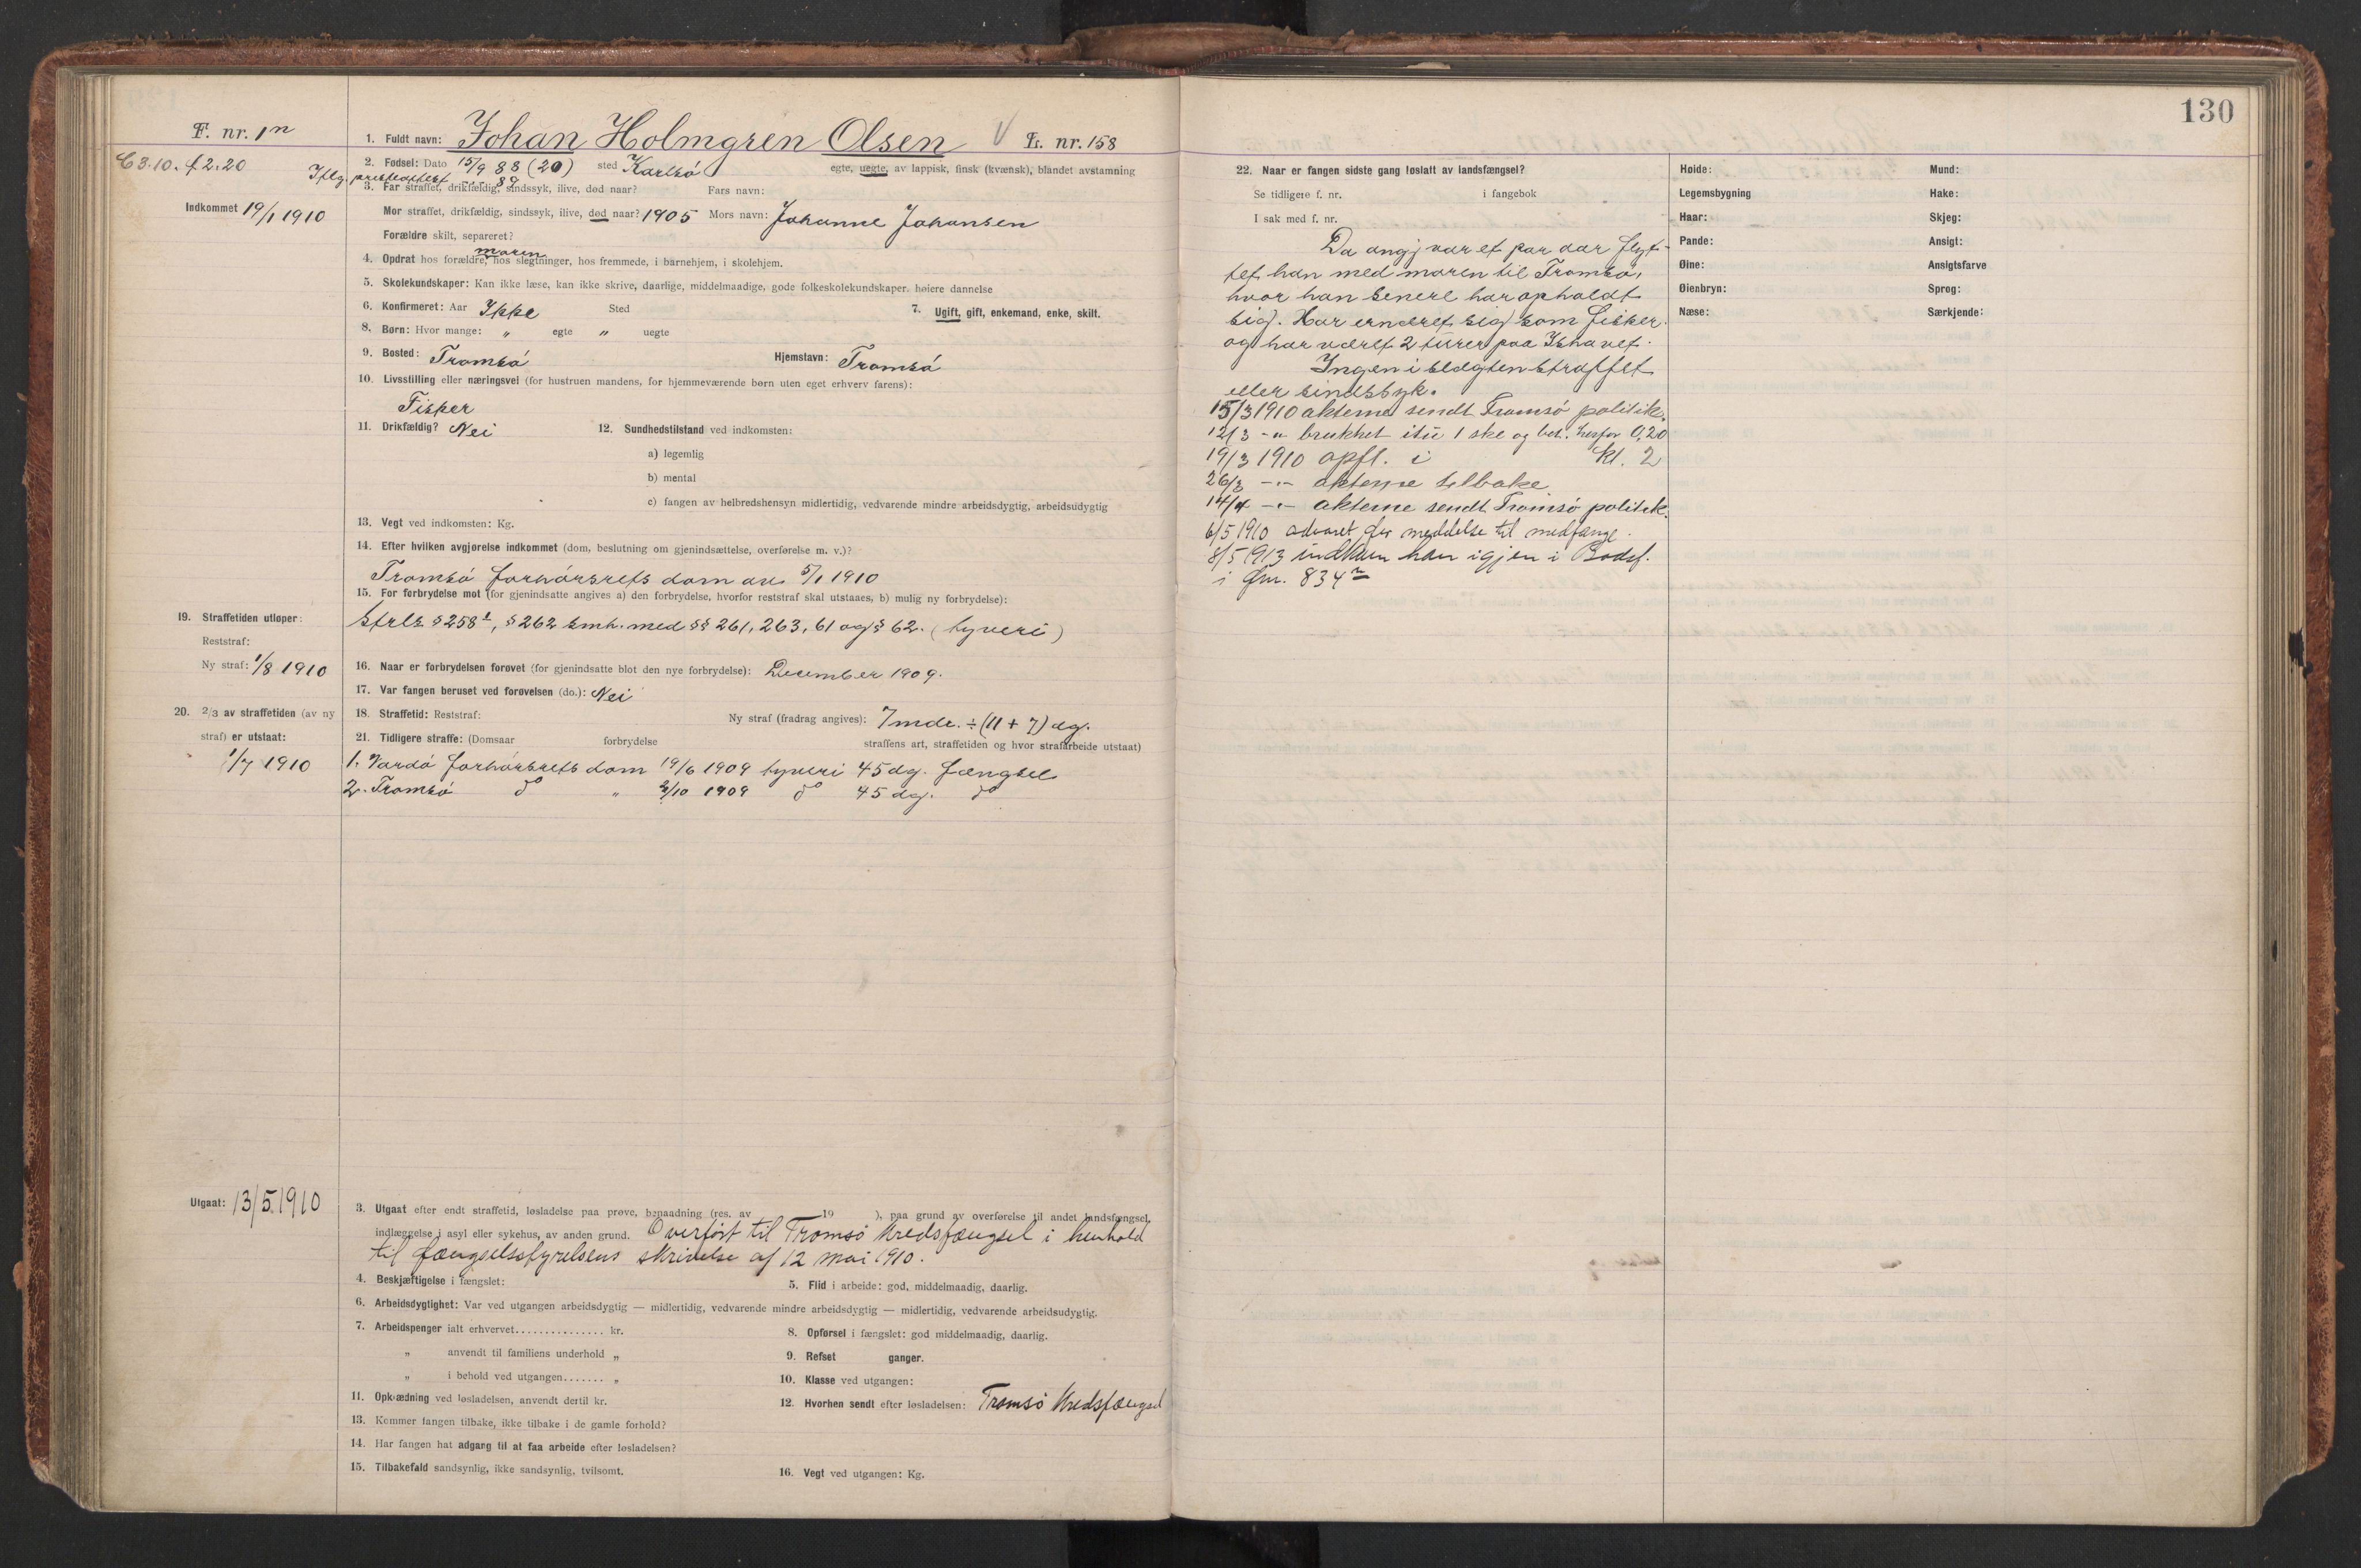 F. nr. 1n
C 3.10. f 2.20
Indkommet 19/1 1910
1. Fuldt navn: Johan Holmgren Olsen V L. nr. 158
2. Fødsel: Dato 15/9 88 (20) sted Karlsö egte, uegte, av lappisk, finsk (kvænsk), blandet avstamning
Iflg. presteattest 89
3. Far straffet, drikfældig, sindssyk, ilive, død naar? Fars navn:
Mor straffet, drikfældig, sindssyk, ilive, død naar? 1905 Mors navn: Johanne Johansen
Forældre skilt, separeret?
moren
4. Opdrat hos forældre, hos slegtninger, hos fremmede, i barnehjem, i skolehjem.
5. Skolekundskaper: Kan ikke læse, kan ikke skrive, daarlige, middelmaadige, gode folkeskolekundskaper. høiere dannelse
6. Konfirmeret: Aar Ikke Sted 7. Ugift, gift, enkemand, enke, skilt.
8. Børn: Hvor mange: " egte " uegte
9. Bosted: Tromsö Hjemstavn: Tromsö
10. Livsstilling eller næringsvei (for hustruen mandens, for hjemmeværende børn uten eget erhverv farens):
Fisker
11. Drikfældig? Nei 12. Sundhedstilstand ved indkomsten:
a) legemlig
b) mental
c) fangen av helbredshensyn midlertidig, vedvarende mindre arbeidsdygtig, arbeidsudygtig
13. Vegt ved indkomsten: Kg.
14. Efter hvilken avgjørelse indkommet (dom, beslutning om gjenindsættelse, overførelse m. v.)?
Tromsö forhörsrets dom av 5/1 1910
15. For forbrydelse mot (for gjenindsatte angives a) den forbrydelse, hvorfor reststraf skal utstaaes, b) mulig ny forbrydelse):
Strls § 258 1, § 262 smh. med §§ 261, 263, 61 og § 62. (tyveri)
19. Straffetiden utløper:
Reststraf:
Ny straf: 1/8 1910
16. Naar er forbrydelsen forøvet (for gjenindsatte blot den nye forbrydelse): December 1909.
17. Var fangen beruset ved forøvelsen (do.): Nei
20. 2/3 av straffetiden (av ny straf) er utstaat:
1/7 1910
18. Straffetid: Reststraf: Ny straf (fradrag angives): 7 mdr. ÷ (11 + 7) dg.
21. Tidligere straffe: (Domsaar forbrydelse straffens art, straffetiden og hvor strafarbeide utstaat)
1. Vardö forhörsrets dom 19/6 1909 tyveri 45 dg. fængsel
2. Tromsö do " 2/10 1909 do 45 dg. do
Utgaat: 13/5.1910
3. Utgaat efter endt straffetid, løsladelse paa prøve, benaadning (res. av 19 ), paa grund av overførelse til andet landsfængsel,
indlæggelse i asyl eller sykehus, av anden grund. Overfört til Tromsö Kredsfængsel i henhold
til fængselsstyrelsens skrivelse af 12 mai 1910.
4. Beskjæftigelse i fængslet: 5. Flid i arbeide: god, middelmaadig, daarlig.
6. Arbeidsdygtighet: Var ved utgangen arbeidsdygtig — midlertidig, vedvarende mindre arbeidsdygtig — midlertidig, vedvarende arbeidsudygtig.
7. Arbeidspenger ialt erhvervet............... kr. 8. Opførsel i fængslet: god middelmaadig, daarlig.
" anvendt til familiens underhold " 9. Refset ganger.
" i behold ved utgangen....... " 10. Klasse ved utgangen:
11. Opklædning ved løsladelsen, anvendt dertil kr. 12. Hvorhen sendt efter løsladelsen: Tromsö Kredsfængsel
13. Kommer fangen tilbake, ikke tilbake i de gamle forhold?
14. Har fangen hat adgang til at faa arbeide efter løsladelsen?
15. Tilbakefald sandsynlig, ikke sandsynlig, tvilsomt. 16. Vegt ved utgangen: Kg.
130
22. Naar er fangen sidste gang løslatt av landsfængsel?
Se tidligere f. nr. i fangebok
I sak med f. nr.
Da angj var et par aar flyt-
tet han med moren til Tromsö,
hvor han senere har opholdt
sig. Har ernæret sig som fisker
og har været 2 turer paa Ishavet.
Ingen i slegten straffet
eller sindssyk.
15/3 1910 akterne sendt Tromsö politik.
12/3 -"- brukket itu 1 ske og bet. herfor 0,20
19/3 1910 opfl. i kl. 2
26/3 -"- akterne tilbake
14/4 -"- akterne sendt Tromsö politik.
6/5 1910 advaret for meddelse til medfange.
8/5 1913 indkom han igjen i Bodsf.
i fnr. 834 n
Høide: Mund:
Legemsbygning Hake:
Haar: Skjeg:
Pande: Ansigt:
Øine: Ansigtsfarve
Øienbryn: Sprog:
Næse: Særkjende: